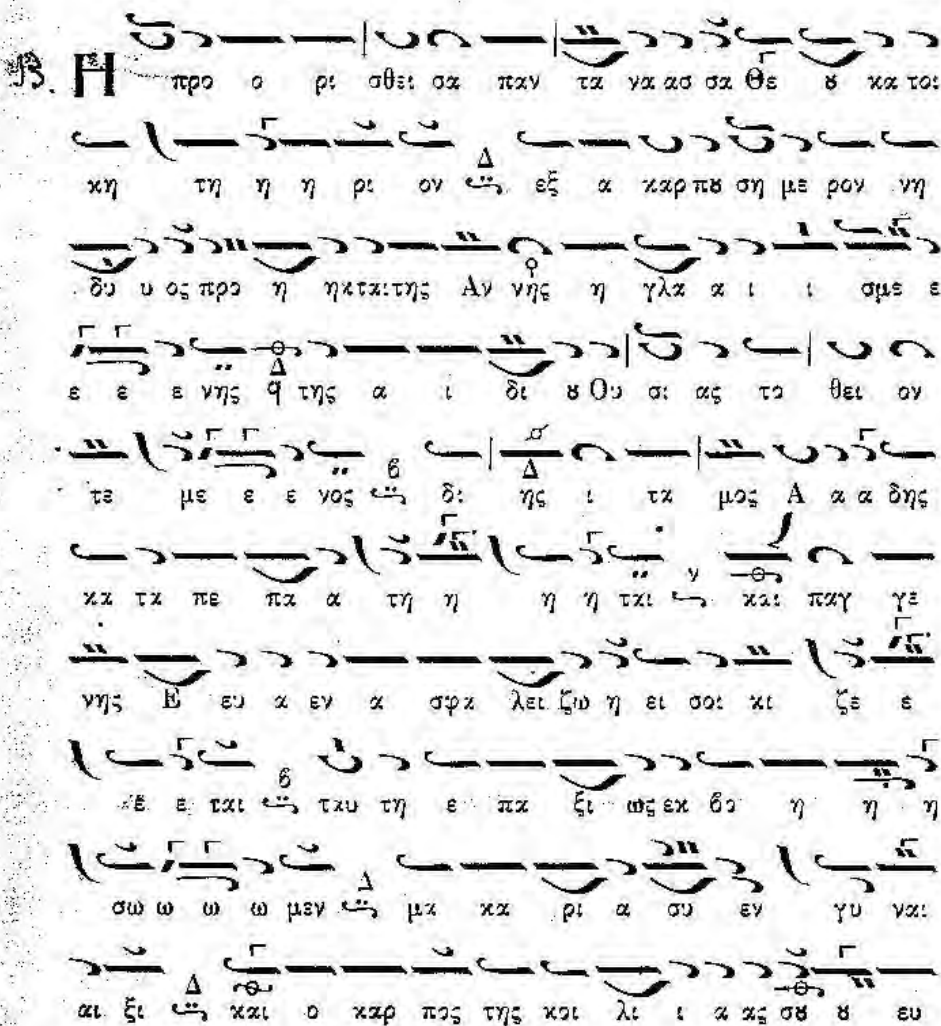 13. Η προ ο ρι σθει σα παν τα να ασ σα Θε ȣ κα τοι
κη τη η η ρι ον Δ εξ α καρ πȣ ση με ρον νη
δυ υ ος προ η ηκται της Αν νης η γλα α ι ι σμε ε
ε ε ε νης q Δ της α ι δι ȣ Ου σι ας το θει ον
τε με ε ε νος β δι Δ ης ι τα μος Α α α δης
κα τα πε πα α τη η η η ται ν και παγ γε
νης Ε ευ α εν α σφα λει ζω η ει σοι κι ζε ε
ε ε ται β ταυ τη ε πα ξι ως εκ βο η η η
σω ω ω ω μεν Δ μα κα ρι α συ εν γυ ναι
αι ξι Δ και ο καρ πος της κοι λι ι α ας σȣ ȣ ευ